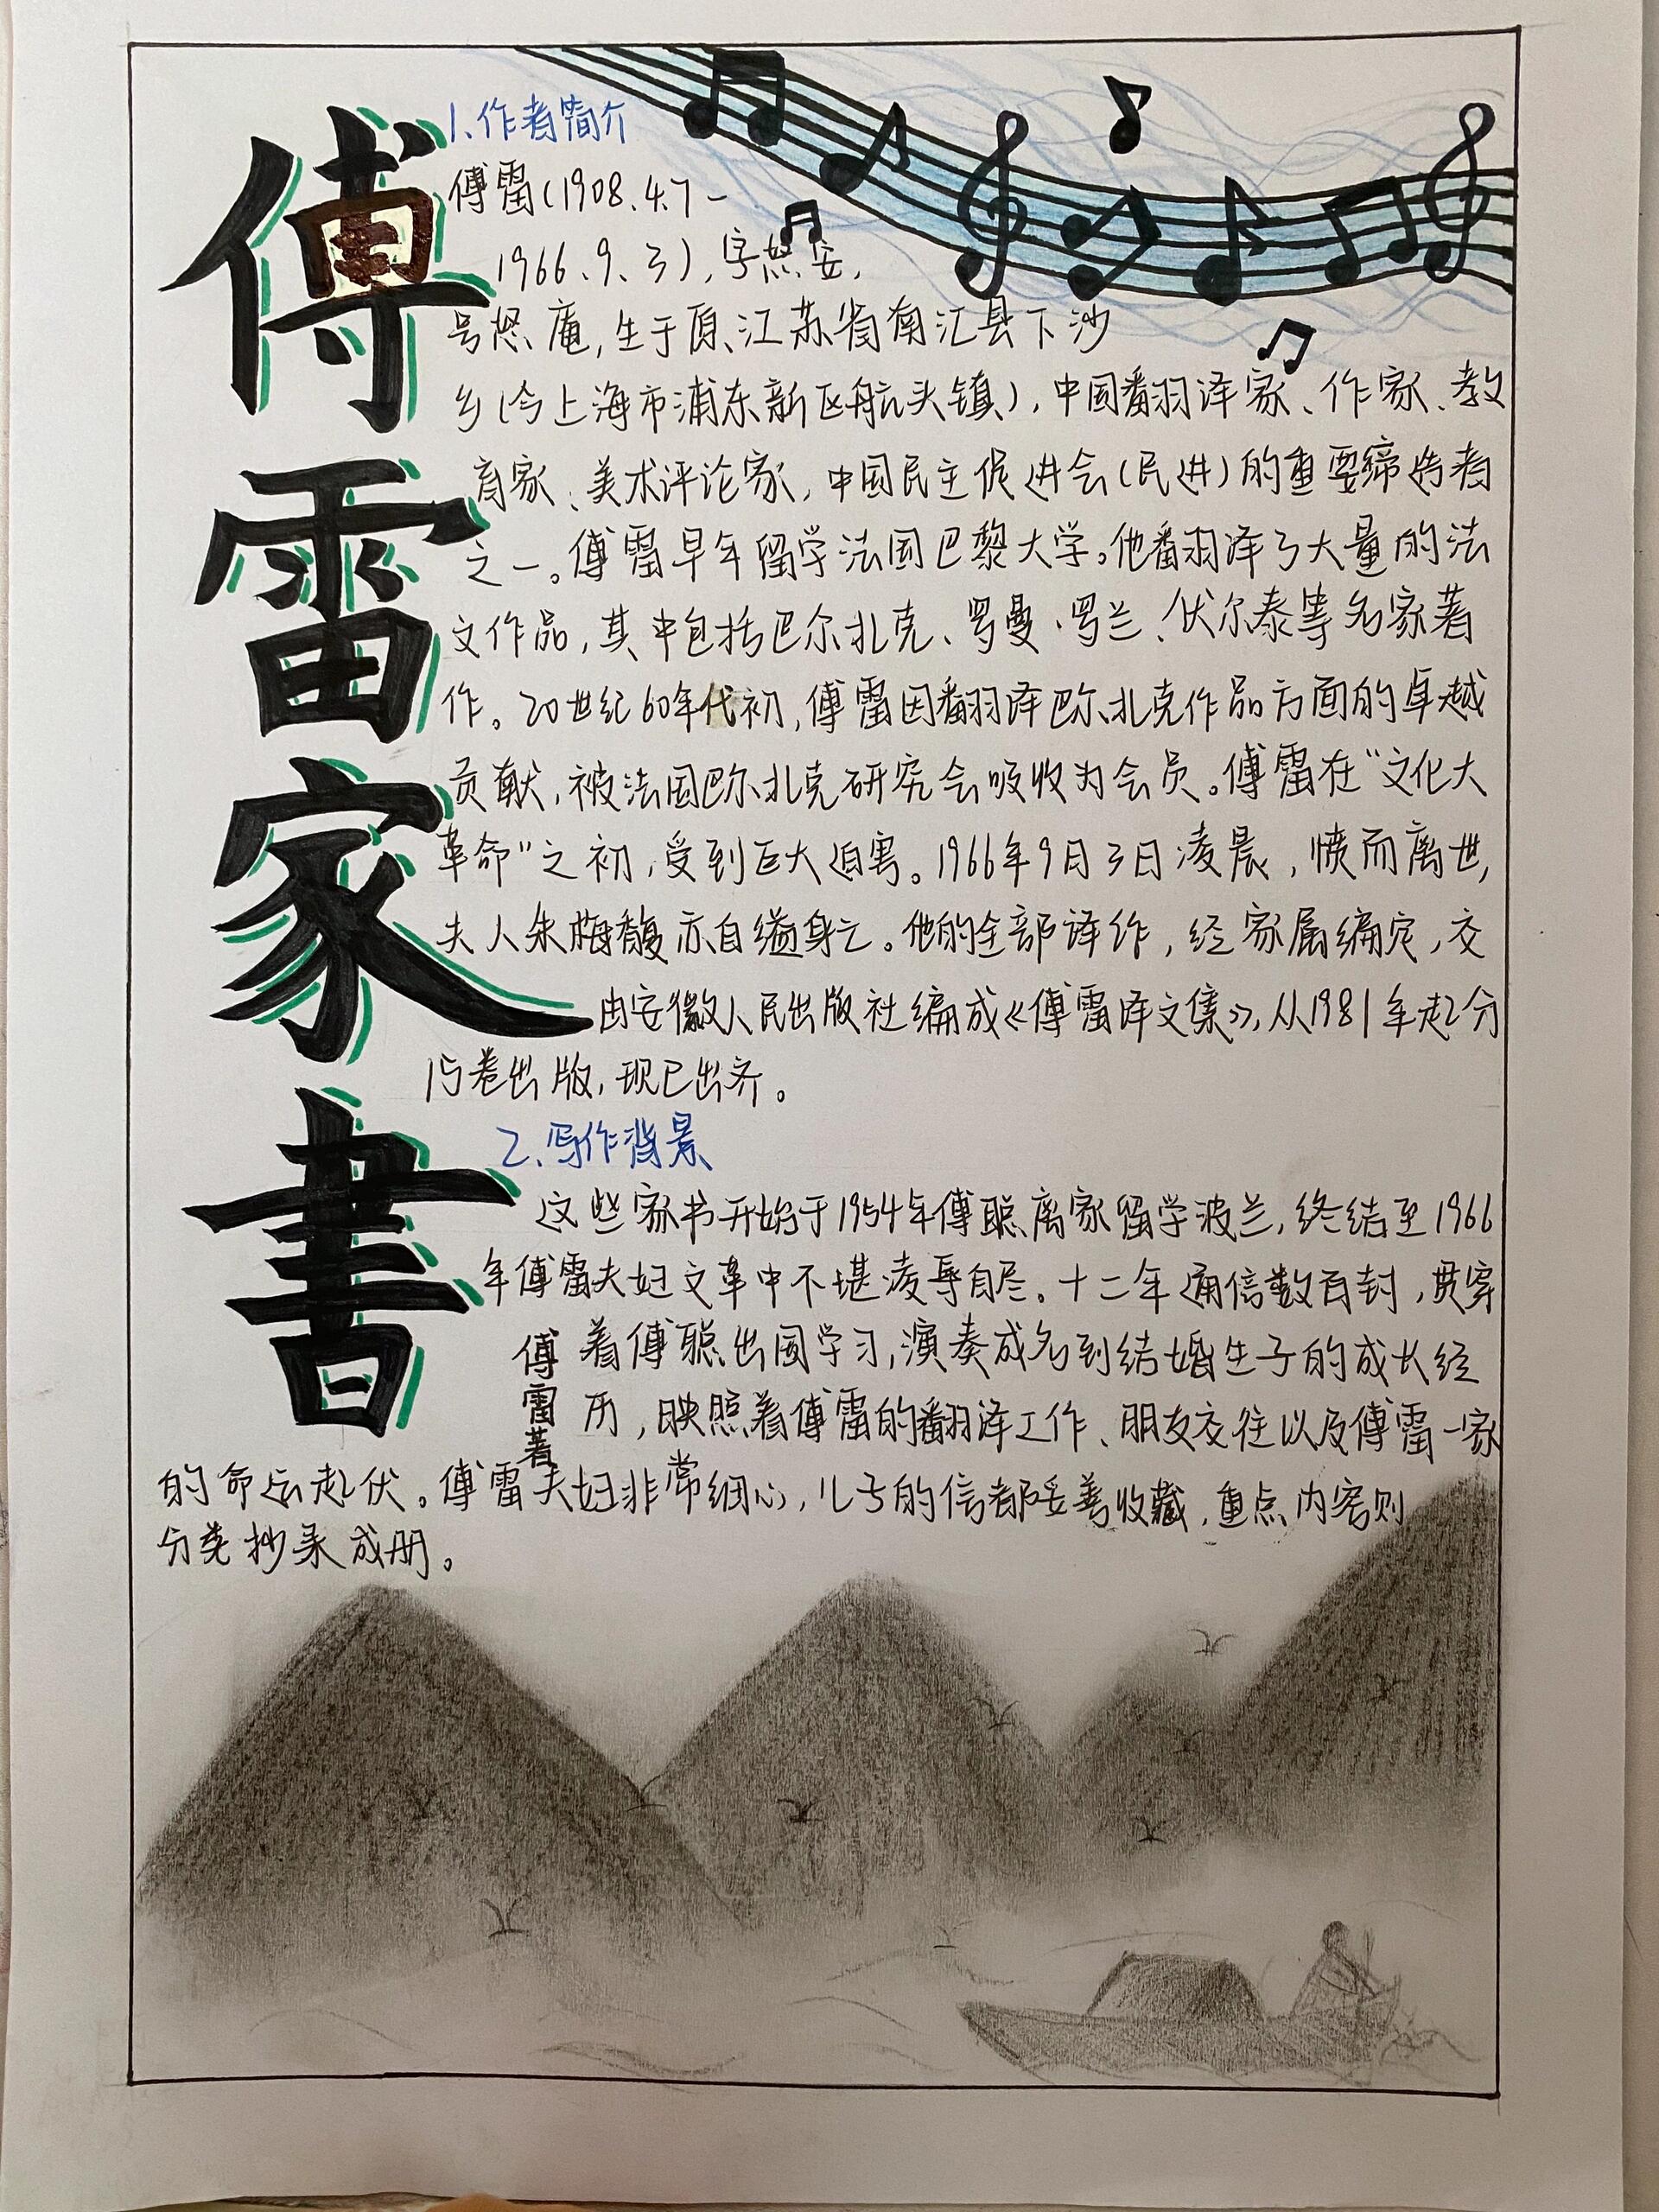 傅雷家書
1.作者简介
傅雷(1908.4.7-
1966.9.3),字怒安,
号怒庵,生于原江苏省南汇县下沙
乡(今上海市浦东新区航头镇),中国翻译家、作家、教
育家、美术评论家,中国民主促进会(民进)的重要缔造者
之一。傅雷早年留学法国巴黎大学。他翻译了大量的法
文作品,其中包括巴尔扎克、罗曼·罗兰、伏尔泰等名家著
作。20世纪60年代初,傅雷因翻译巴尔扎克作品方面的卓越
贡献,被法国巴尔扎克研究会吸收为会员。傅雷在“文化大
革命”之初,受到巨大迫害。1966年9月3日凌晨,愤而离世,
夫人朱梅馥亦自缢身亡。他的全部译作,经家属编定,交
由安徽人民出版社编成《傅雷译文集》,从1981年起分
15卷出版,现已出齐。
2.写作背景
这些家书开始于1954年傅聪离家留学波兰,终结至1966
年傅雷夫妇文革中不堪凌辱自尽。十二年通信数百封,贯穿
着傅聪出国学习,演奏成名到结婚生子的成长经
历,映照着傅雷的翻译工作、朋友交往以及傅雷一家
的命运起伏。傅雷夫妇非常细心,儿子的信都妥善收藏,重点内容则
分类抄录成册。
傅雷著